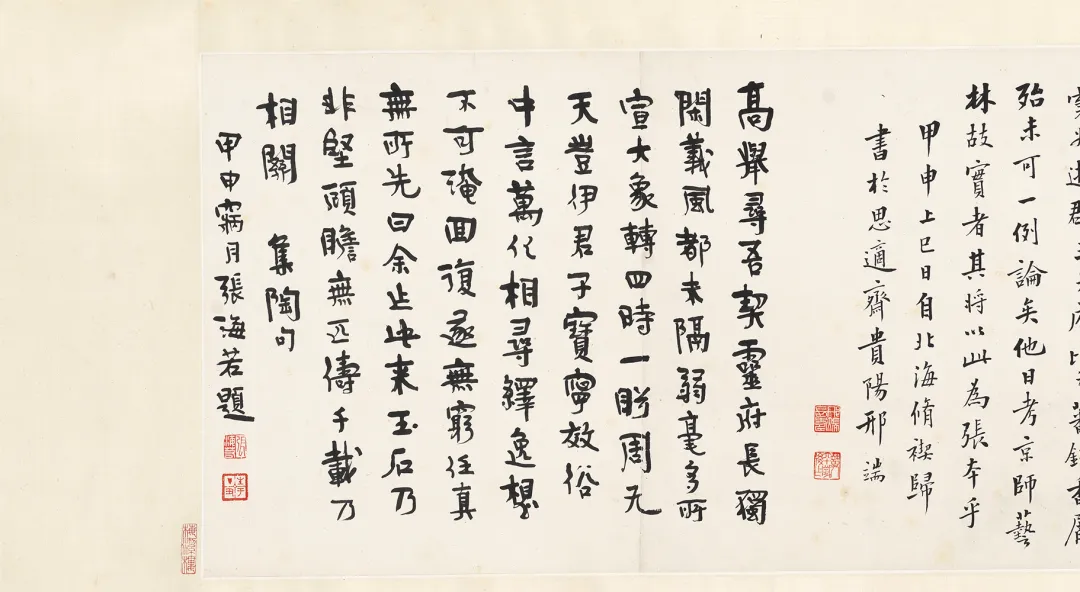 殆未可一例論矣他日考京師藝
林故實者其將以此為張本乎
甲申上巳日自北海脩禊歸
書於思適齋貴陽邢端
高舉尋吾契靈府長獨
閑義風都未隔弱毫多所
宣大象轉四時一盼周九
天豈伊君子寶寧效俗
中言萬化相尋繹逸想
不可淹回復遂無窮任真
無所先曰余此来玉石乃
非堅顧瞻無匹儔千載乃
相關 集陶句
甲申寎月張海若題